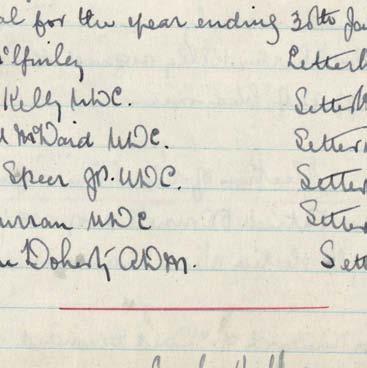 al for the year ending 30th Ja
Kelly UDC. Letterk
McDaid UDC. Letter
Speer JP. UDC. Letter
Curran UDC Letter
Doherty ADM. Lett